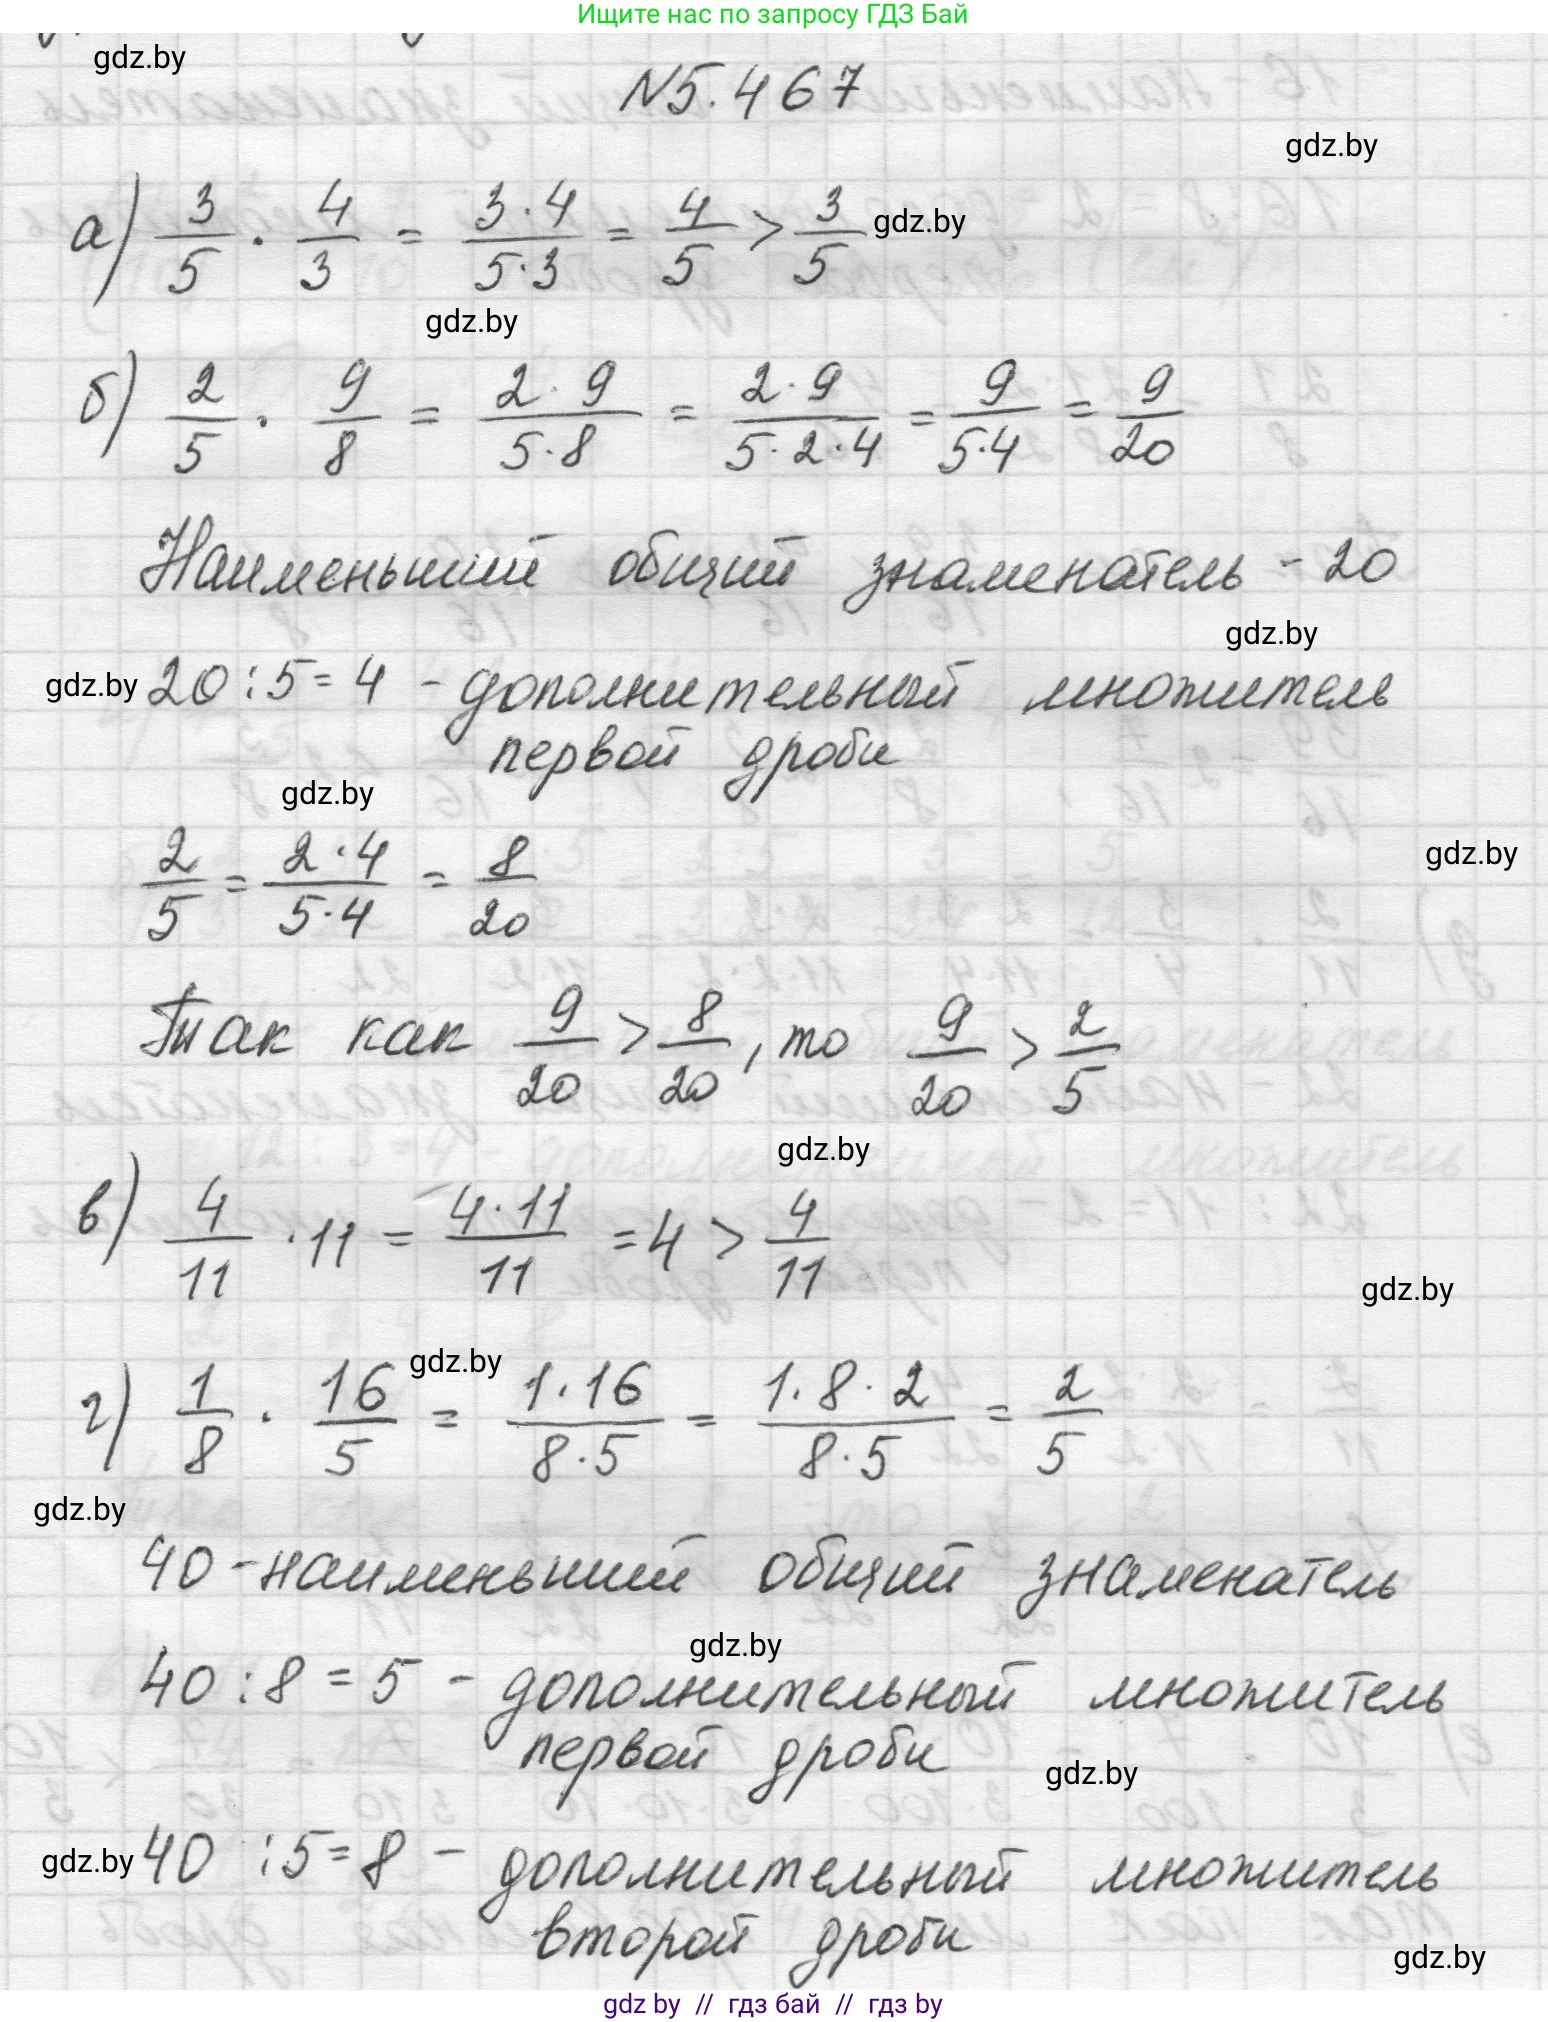 Ищите нас по запросу ГДЗ Бай
gdz.by
N5.467
gdz.by
а) 3/5 · 4/3 = 3·4/5·3 = 4/5 > 3/5 gdz.by
gdz.by
б) 2/5 · 9/8 = 2·9/5·8 = 2·9/5·2·4 = 9/5·4 = 9/20
Наименьший общий знаменатель - 20
gdz.by
gdz.by 20:5=4 - дополнительный множитель
первой дроби
gdz.by
gdz.by
2/5 = 2·4/5·4 = 8/20
Так как 9/20 > 8/20, то 9/20 > 2/5
gdz.by
в) 4/11 · 11 = 4·11/11 = 4 > 4/11
gdz.by
gdz.by
г) 1/8 · 16/5 = 1·16/8·5 = 1·8·2/8·5 = 2/5
gdz.by
40 - наименьший общий знаменатель
gdz.by
40:8=5 - дополнительный множитель
первой дроби
gdz.by
gdz.by 40:5=8 - дополнительный множитель
второй дроби
gdz.by
gdz by // гдз бай // гдз by